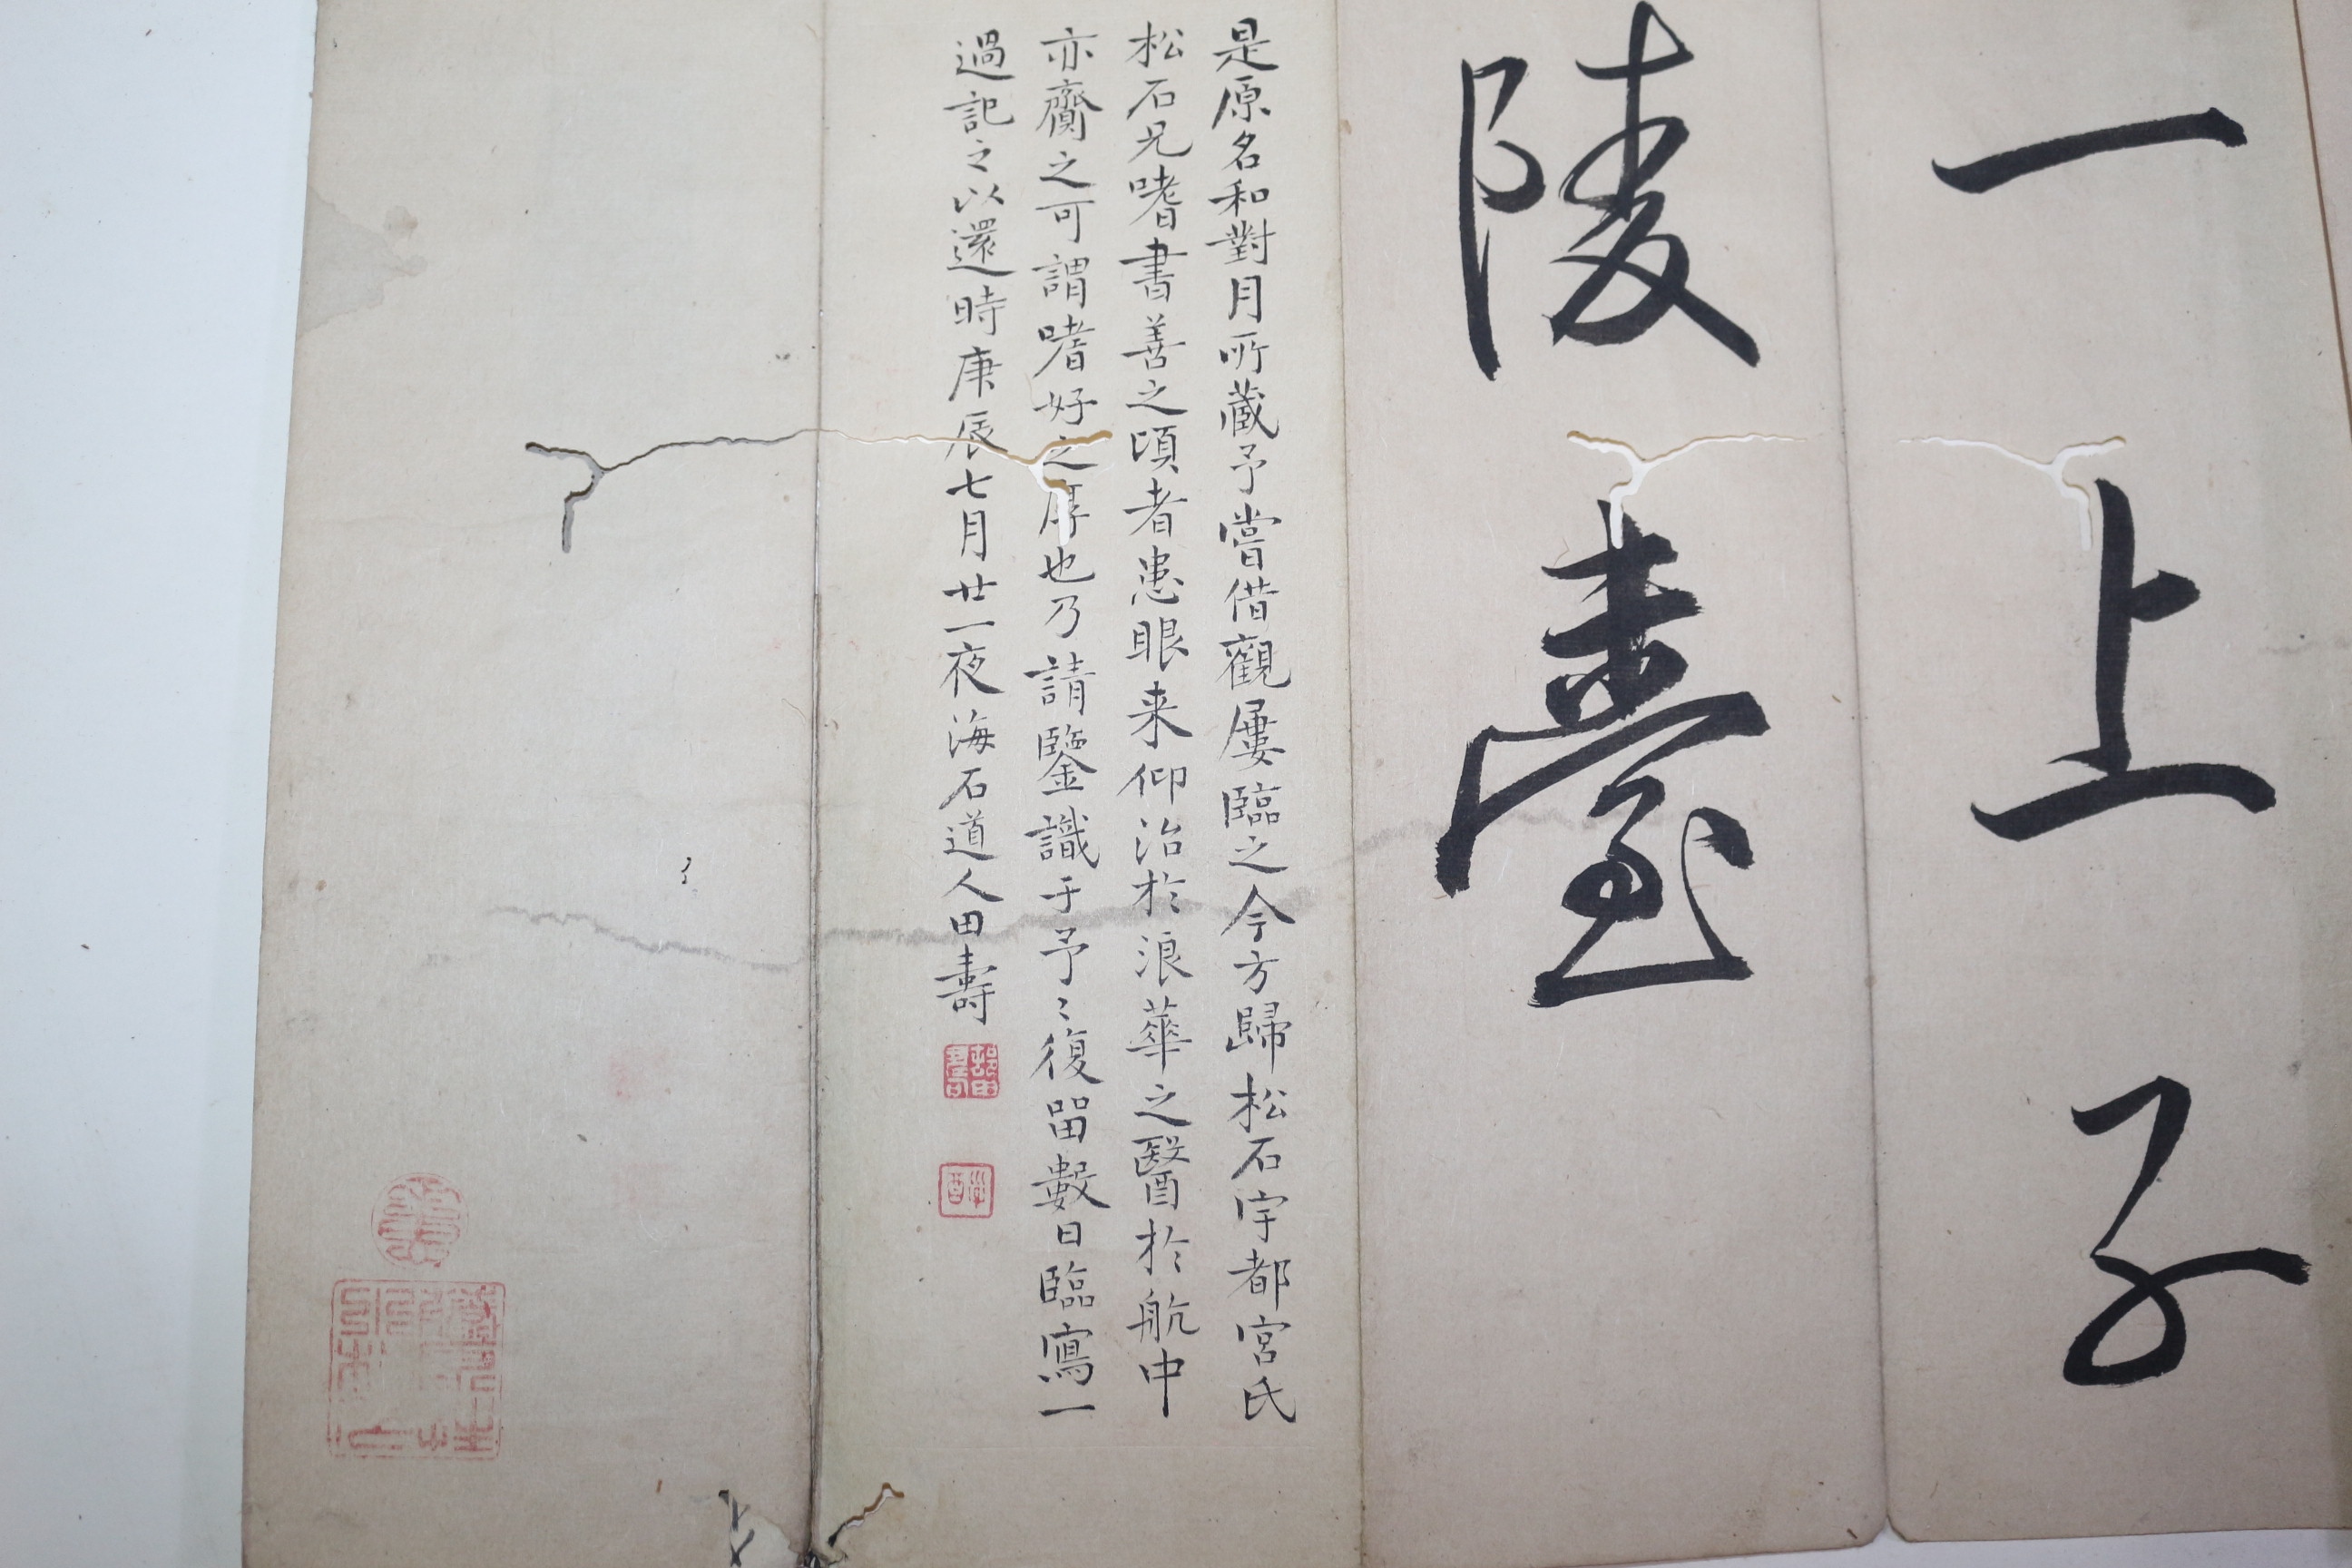 一上子
陵臺
是原名和對月所藏予嘗借觀屢臨之今方歸松石宇都宮氏
松石兄嗜書善之頃者患眼来仰治於浪華之醫於航中
亦齎之可謂嗜好之厚也乃請鑒識于予〻復留數日臨寫一
過記之以還時庚辰七月廿一夜海石道人田壽